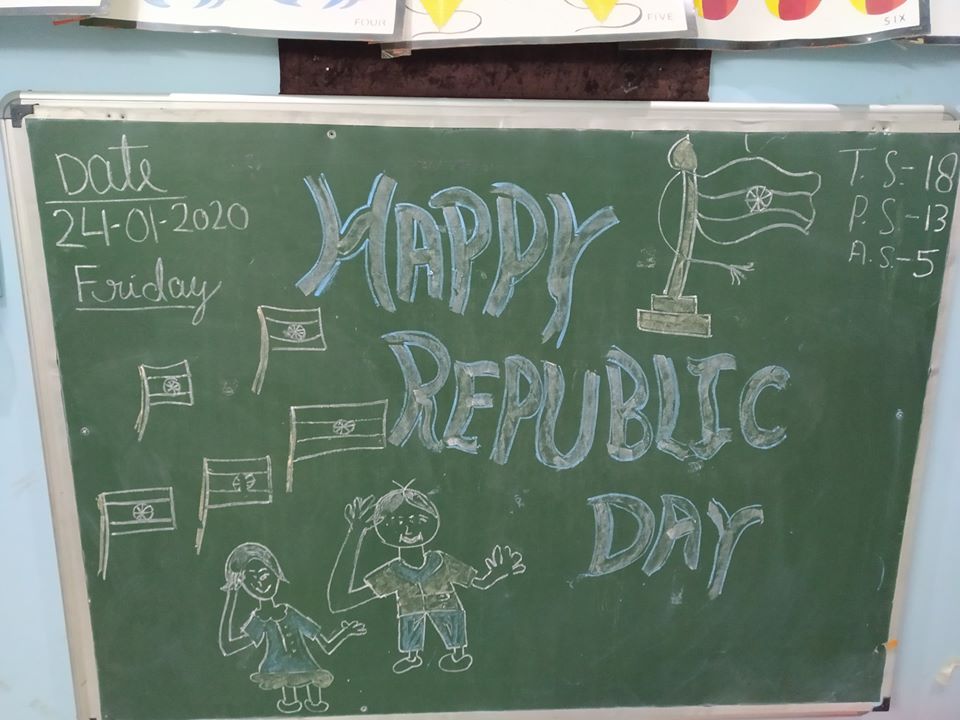 FOUR
FIVE
SIX
Date
24-01-2020
Friday
T. S.-18
P. S-13
A. S.-5
HAPPY
REPUBLIC
DAY